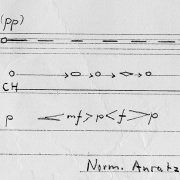 (pp)
CH
p <mf>p<f>p
Norm. Ansatz